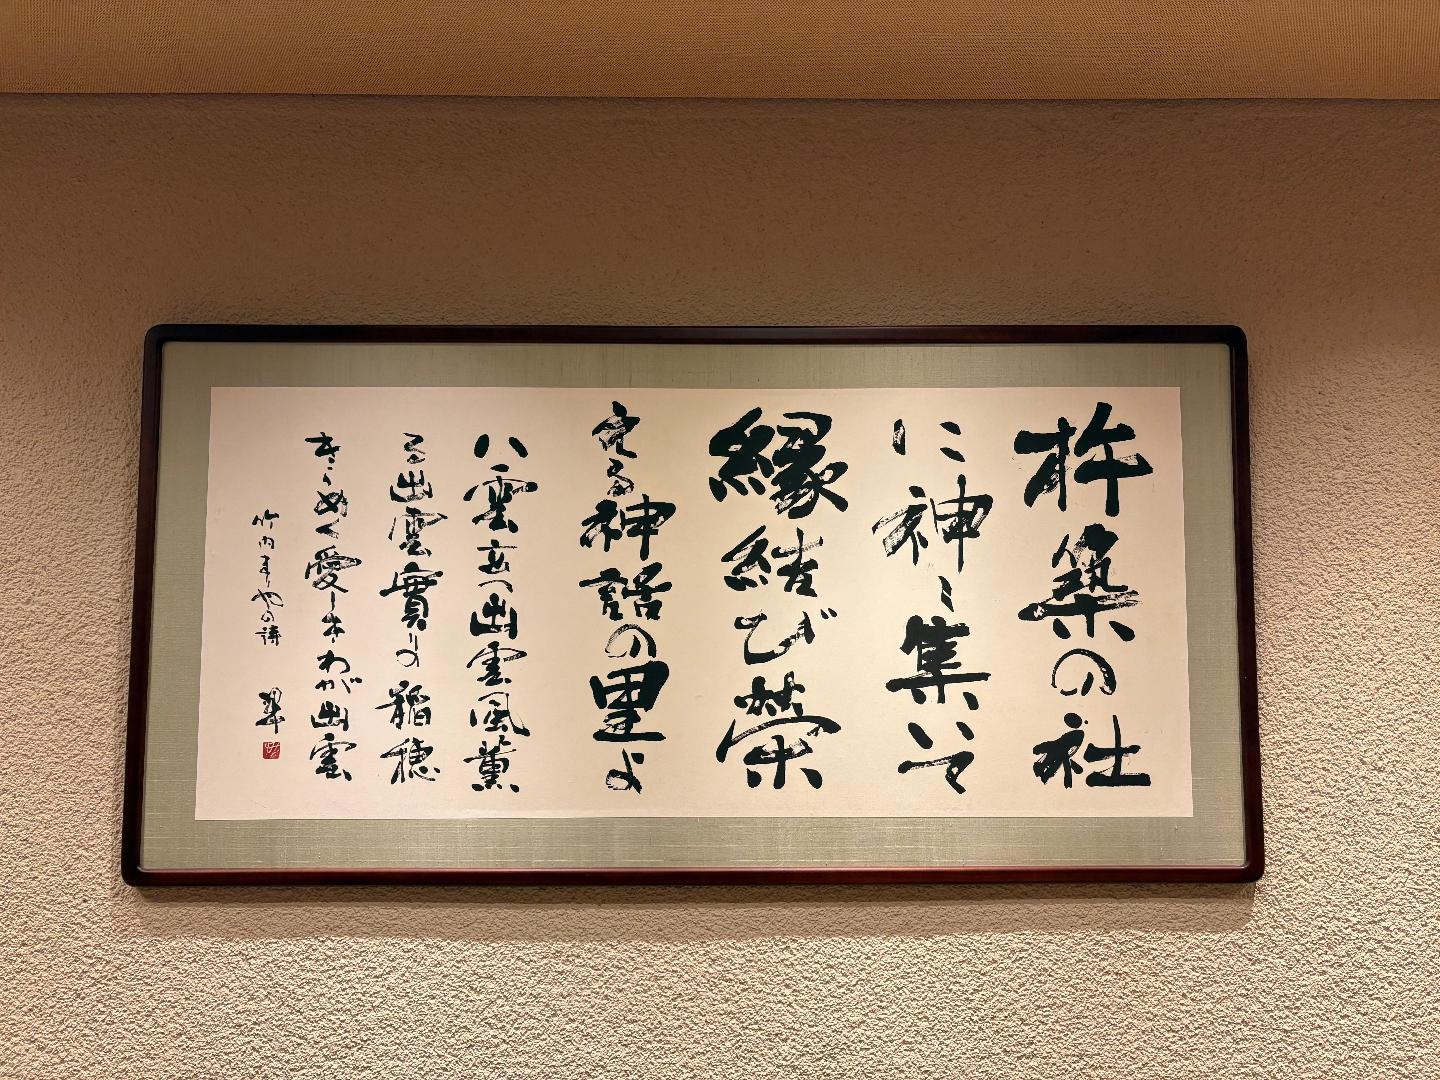 杵築の社
に神々集いて
縁結び栄
え る神話の里よ
八雲立つ出雲風薫
る出雲實りの稲穂
きらめく愛しきわが出雲
竹内まりやの詩
翠